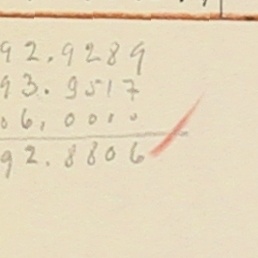 92.9289
93.9517
06,0000
92.8806